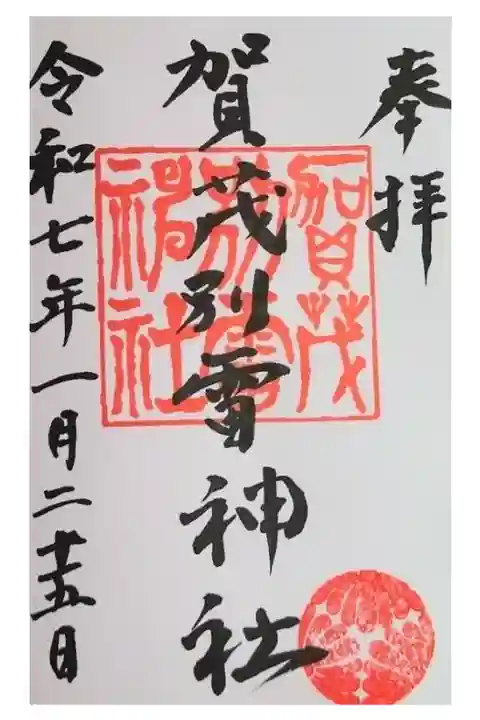 奉拝
賀茂別雷神社
令和七年一月二十五日
賀茂
神社